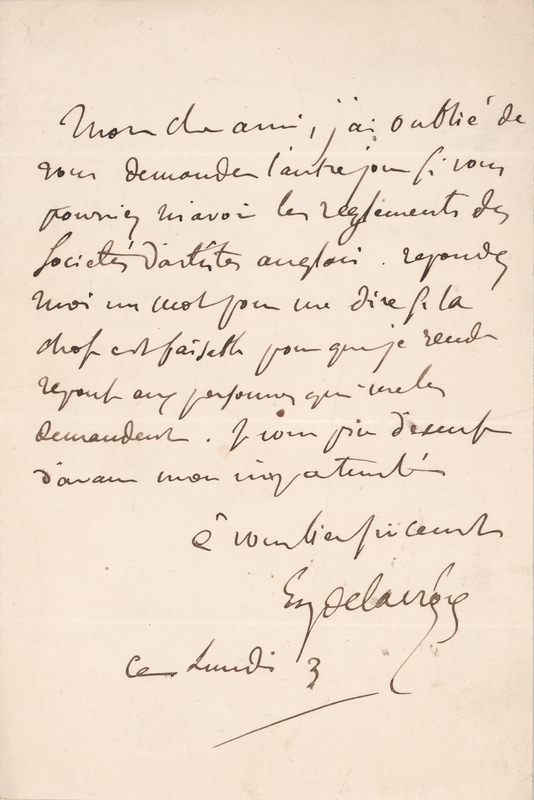 Mon cher ami, j'ai oublié de
vous demander l'autre jour si vous
pourriez m'avoir les reglements des
Societés d'artistes anglais. repondez
moi un mot pour me dire si la
chose est faisable pour que je rende
reponse aux personnes qui me les
demandent. Je vous prie d'excuser
d'avance mon importunité
à vous bien sincerement
Eug Delacroix
Ce Lundi 3